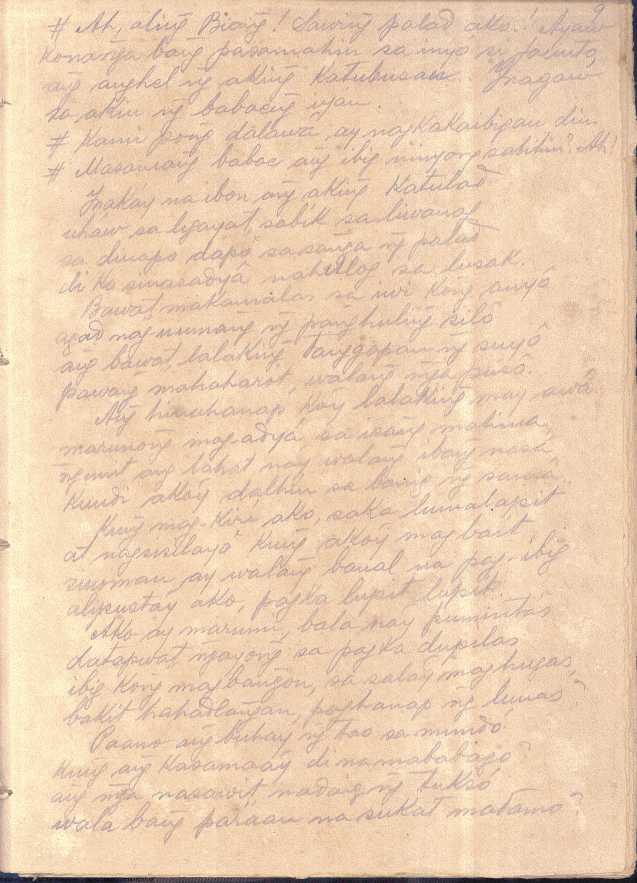 9
# Ah, aling Biang! Sawing palad ako! Ayaw
ko nanya bang pasamahin sa inyo si Jacinto,
ang anghel ng aking Katubusan. Inagaw
sa akin ng babaeng iyan.
# Kami pong dalawa ay nagkakaibigan din.
# Masamang babae ang ibig ninyong sabihin? Ah!
Inakay na ibon ang aking Katulad
uhaw sa ligaya't, sabik sa liwanag
sa dumapo dapo sa sanga ng palad
di ko sinasadya nahulog sa lusak.
Bawat makamalas sa uri kong anyo
agad nag-uumang ng panghuling silo
ang bawat lalaking tanggapan ng suyo
pawang mahaharot, walang mga puso.
Ang hinahanap koy lalaking may awa
marunong mag-adya sa isang mahina,
ngunit ang lahat nay walang ibang nasa
kundi akoy dalhin sa bangin ng sama.
Kung mag-kiri ako, saka lumalapit
at nagsisilayo kung akoy magbait
sinoman ay walang banal na pag-ibig
alipustay ako, pagka lupit lupit.
Ako ay marumi, bala nay pumintas
datapwat ngayong sa pagka dupilas
ibig kong magbangon, sa salay maghugas,
bakit hahadlangan, paghanap ng lunas?
Paano ang buhay ng tao sa mundo
kung ang kasamaay di na mababago?
ang mga nasawit nadaig ng tukso
wala bang paraan na sukat matamo?